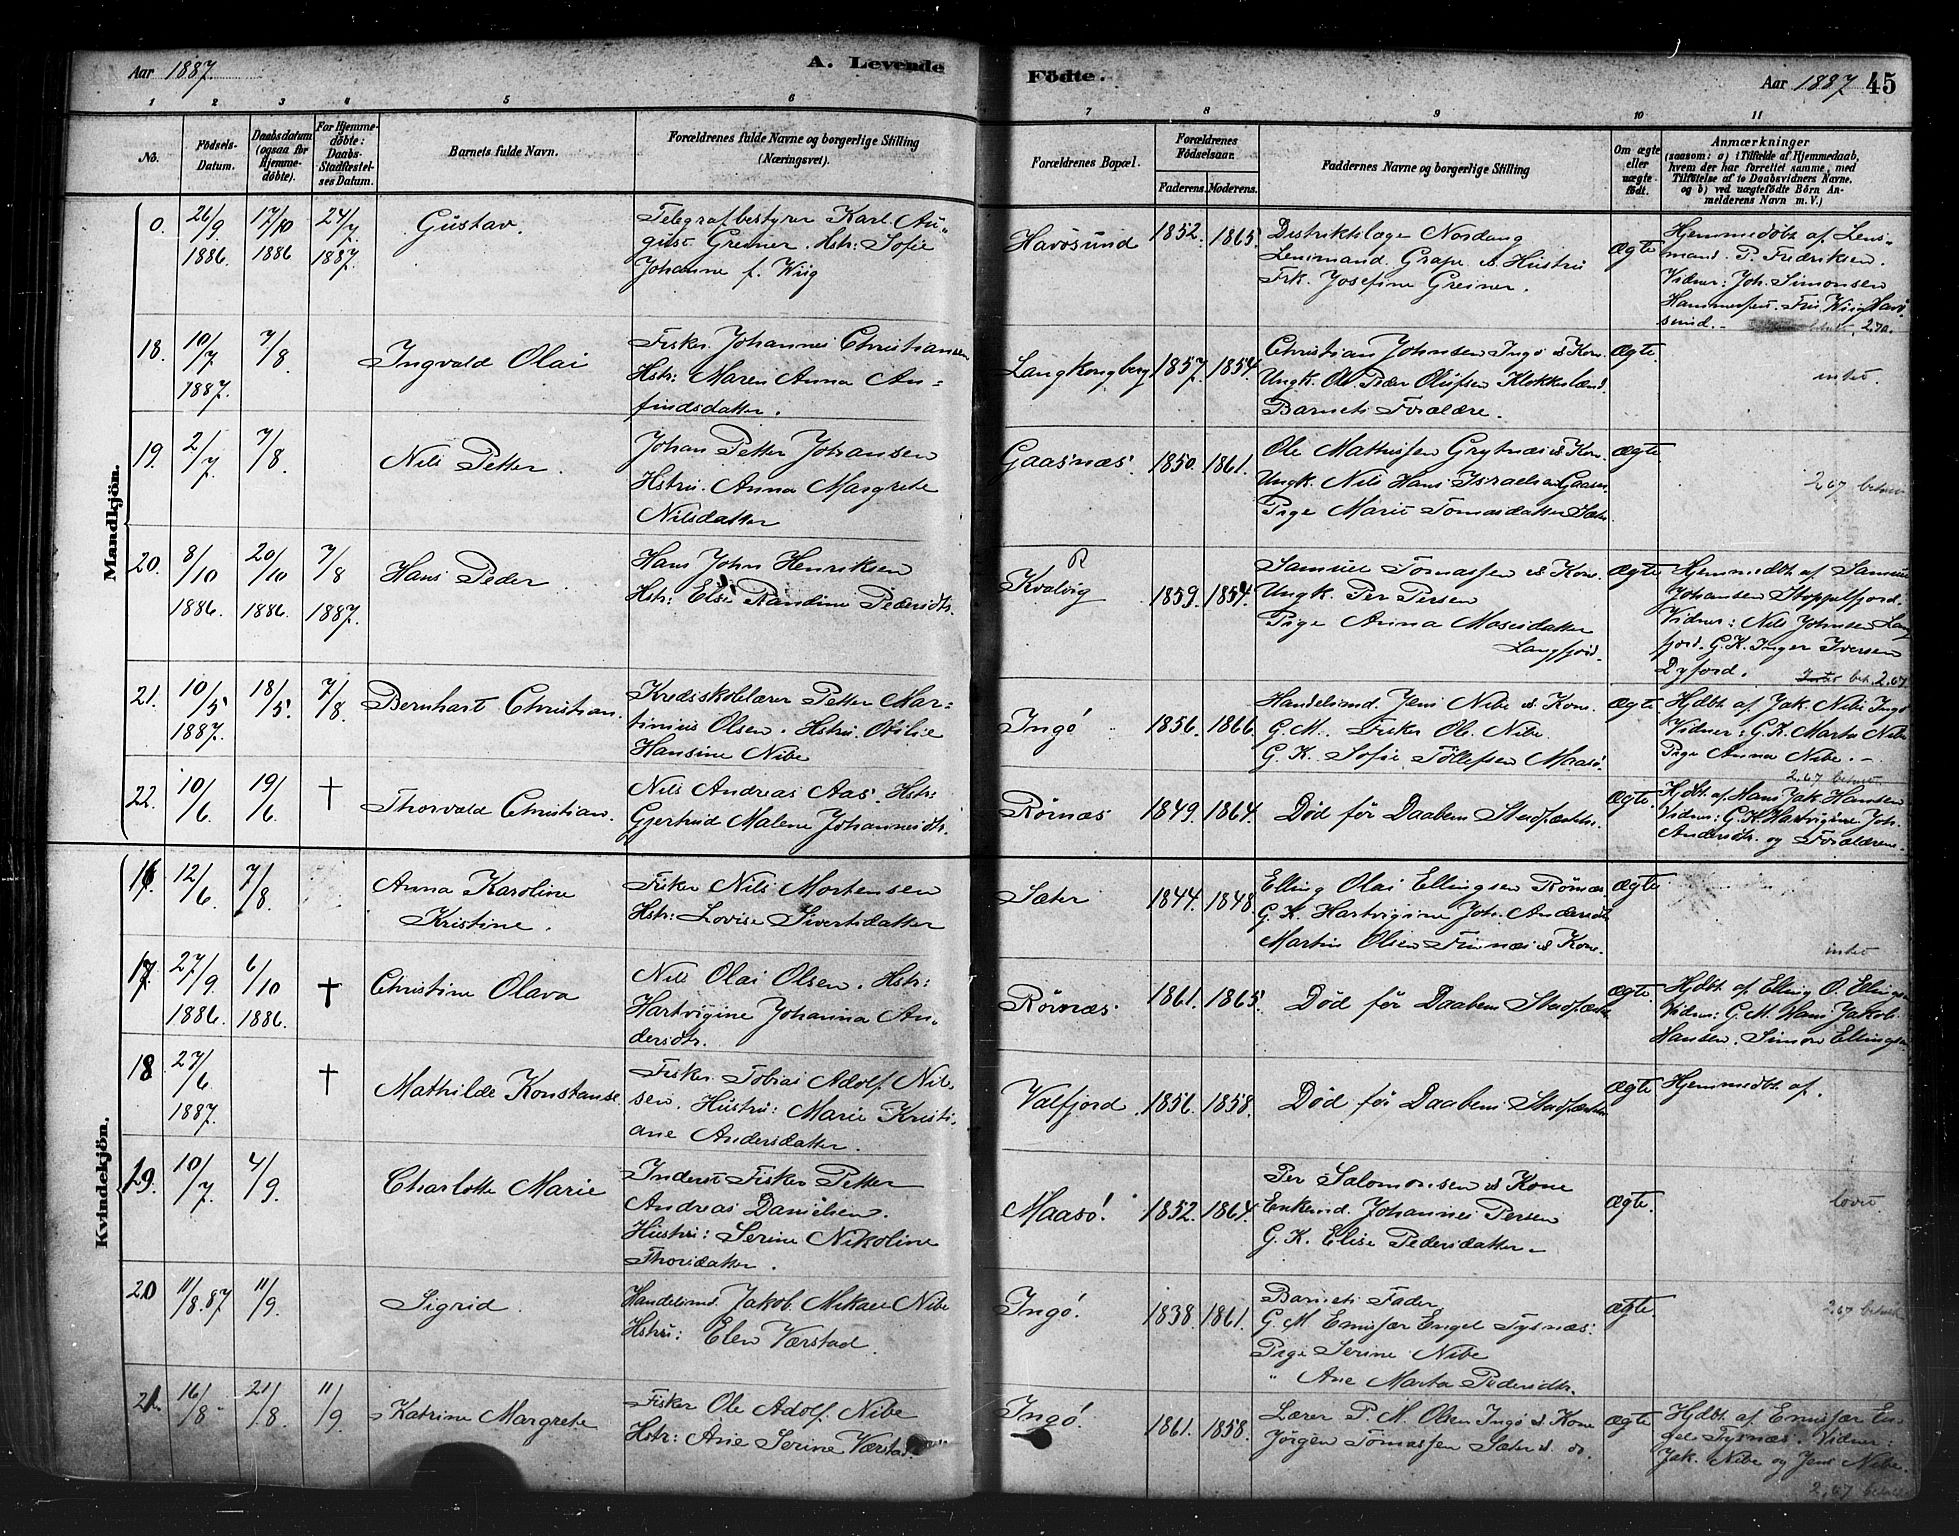 Aar 1887. A. Levende
Födte. Aar 1887 45
1 2 3 4 5 6
7 8 9 10 11
No. Födsels-Datum. Daabsdatum (ogsaa for Hjemme-döbte). For Hjemme-döbte: Daabs-Stadfæstel-ses Datum. Barnets fulde Navn. Forældrenes fulde Navne og borgerlige Stilling (Næringsvei).
Forældrenes Bopæl. Forældrenes Födselsaar. Faderens. Moderens. Faddernes Navne og borgerlige Stilling Om ægte eller uægte födt. Anmærkninger
(saasom: a) i Tilfælde af Hjemmedaab, hvem der har forrettet samme, med Tilföielse af to Daabsvidners Navne. og b) ved uægtefödte Börn Anmelderens Navn m. V.)
Mandkjön.
0. 26/9 1886. 17/10 1886 24/7 1887. Gustav. Telegrafbestyrer Karl Au-
gust Greiner. Hstr: Sofie
Johanne f. Wiig
Havösund 1852. 1865. Distriktslæge Nordang
Lensmand Grape & Hustru
Frk. Josefine Greiner.
Ægte Hjemmedöbt af Lens-
mand. P. Fredriksen.
Vidner: Joh. Simonsen
Hammerfest Wiig Havö
sund. 2,70.
18. 10/7 1887. 7/8. Ingvald Olai Fisker Johannes Christiansen
Hstr: Maren Anna An-
findsdatter.
1857. 1854. Christian Johnsen Ingö & Kone
Ungk. Ole Peder Olufsen
Barnets Forældre.
Ægte. intet.
19. 2/7 7/8. Nils Petter. Johan Petter Johansen
Hstru. Anna Margrete
Nilsdatter
Gaasnæs. 1850. 1861. Ole Mathissen Grytnæs & Kone
Ungk. Nils Hans Israelsen Gaasn.
Pige Marie Tomasdatter Sæter
Ægte. 2.67 betalt
20. 8/10 1886. 20/10 1886. 7/8 1887. Hans Peder. Hans John Henriksen
Hstr: Else Randine Pedersdtr.
Kvalvig 1859. 1854. Samuel Tomassen & Kone.
Ungk. Per Persen
Pige Anna Mosesdatter
Langfjord.
Ægte Hjemmedöbt af Samuel
Johansen
Vidner: Nils Johnsen Lang
fjord. G.K. Inger Iversen
Dyfjord. bet. 2.67
21. 10/5 1887. 18/5. 7/8. Bernhart Christian. Kredsskolelærer Petter Mar-
tinius Olsen. Hstru. Otilie
Hansine Nibe
Ingö 1856. 1866 Handelsmd. Jens Nibe & Kone.
G.M. Fisker Ole Nibe.
G.K. Sofie Tollefsen Maasö.
Ægte Hjdbt af Jak. Nibe Ingö
Vidner: G.K. Marta Nibe
Pige Anna Nibe.
2.67 betalt
22. 10/6 19/6 † Thorvald Christian. Nils Andreas Aas. Hstr:
Gjertrud Malene Johannesdtr.
Rörnæs 1849. 1864. Död för Daabens Stadfæstelse.
Ægte Hjdbt. af Hans Jak. Hansen
Vidner: G.K. Hartvigine Joh.
Andersdtr. og Forældrene.
Kvindekjön.
16. 12/6 7/8. Anna Karoline
Kristine.
Fisker Nils Mortensen
Hstr: Lovise Sivertsdatter
Sæter 1844. 1848. Elling Olai Ellingsen Rörnæs
G.K. Hartvigine Joh. Andersdtr
Martin Olsen Finnæs & Kone.
Ægte intet
17. 27/9 1886. 6/10 1886. † Christine Olava Nils Olai Olsen. Hstr:
Hartvigine Johanna An-
dersdtr.
Rörnæs 1861. 1865. Död för Daabens Stadfæstelse
Ægte. Hjdbt. af Elling O. Ellingsen
Vidner: G.M. Hans Jakob
Hansen. Simon Ellingsen
18 27/6 1887. † Mathilde Konstanse Fisker Tobias Adolf Nil-
sen. Hustru: Marie Kristi-
ane Andersdatter.
Valfjord. 1856. 1858. Död för Daabens Stadfæstelse
Ægte. Hjemmedbt. af.
19. 10/7 4/9. Charlotte Marie Inderst Fisker Petter
Andreas Danielsen.
Hustru: Serine Nikoline
Thorsdatter.
Maasö. 1852. 1864. Per Salomonsen & Kone
Enkemd. Johannes Persen
G.K. Elise Pedersdatter
Ægte. lovet.
20 11/8.87 11/9. Sigrid. Handelsmd. Jakob Mikael Nibe
Hstru: Elen Værstad.
Ingö. 1838. 1861. Barnets Fader
G.M Emissær Engel Tysnæs.
Pige Serine Nibe
" Ane Marta Pedersdtr.
ægte. 2.67 betalt
21. 16/8 21/8. 11/9 Katrine Margrete Fisker Ole Adolf Nibe
Hstr: Ane Serine Værstad.
Ingö. 1861. 1858. Lærer P. M. Olsen Ingö & Kone
Jörgen Tomassen Sæter & do
Ægte Hjdbt. af Emissær En-
gel Tysnæs. Vidner:
Jak. Nibe og Jens Nibe.
2.67 betalt